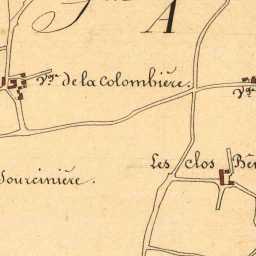 A
Vge de la Colombière.
Vge
Les clos Bé
Sourcinière.